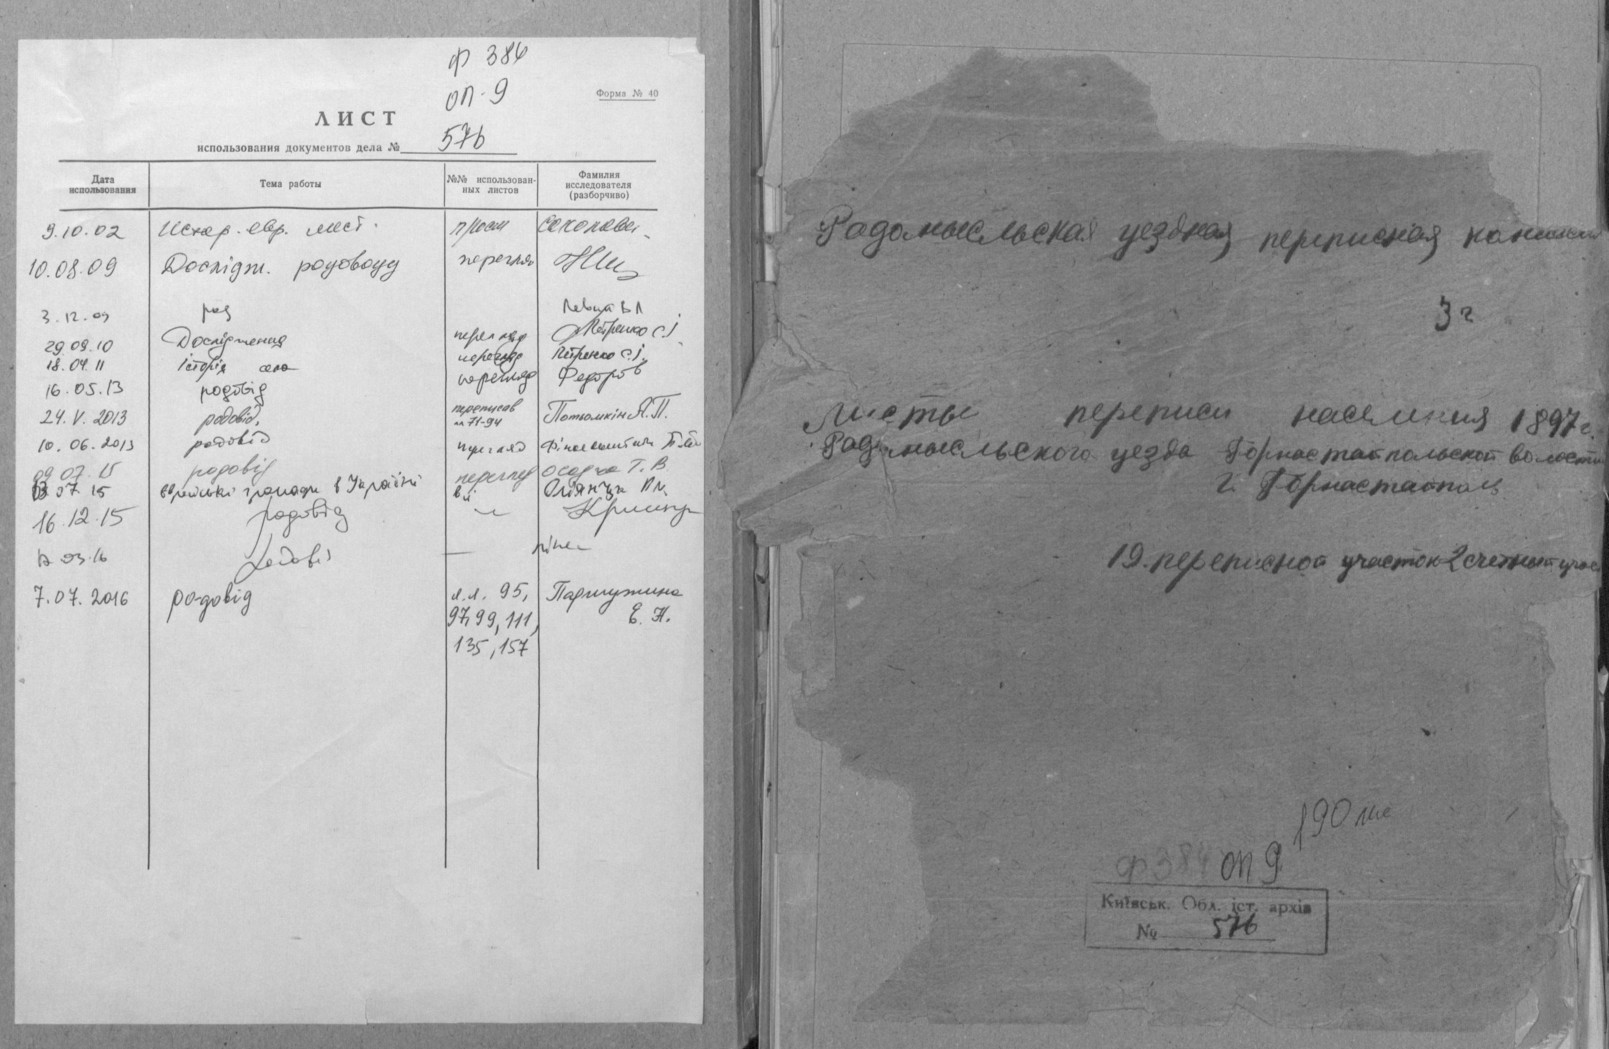 Ф 384
ОП. 9
Форма № 40
ЛИСТ
использования документов дела № 576
Дата использования
Тема работы
№№ использован-ных листов
Фамилия исследователя (разборчиво)
9.10.02 Истор. евр. мест.
10.08.09 Дослідж. родоводу перегляд
3.12.09 Левит В Л
29.09.10 Дослідження перегляд Петренко С.І.
18.04.11 Історія села перегляд Петренко С.І.
16.05.13 родовід перегляд Федоров
24.V.2013 родовід, Потьомкін А.П.
лл 71-94
10.06.2013 родовід перегляд
09.07.15 родовід перегляд Осадча Т.В
07 15 єврейські громади в Україні всі
16.12.15 родовід
03.16 родовід
7.07.2016 родовід л.л. 95, Паршужина
97, 99, 111, Е. Н.
135, 157
Радомысльская уездная переписная
3 г
Листы переписи населения 1897 г.
Радомысльского уезда Горностайпольской волости
г. Горностайполь
19. переписной участок 2 счетный
190 лис
Ф 384 ОП 9
Київськ. Обл. іст. архів
№ 576